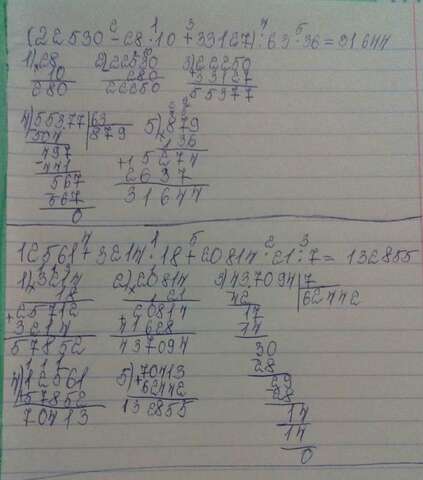 2 1 3 4 5
(22530-28·10+33127):63·36=31644
1) 28 2) 22530 3) 22250
×10 -280 +33127
280 22250 55377
4) 55377 | 63 5) ×879
-504 | 879 36
497 +5274
-441 2637
567 31644
-567
0
4 1 5 2 3
12561+3214·18+20814·21:7=132855
1) 3214 2) ×20814 3) 437094 | 7
18 21 42 | 62442
+25712 +20814 17
3214 41628 14
57852 437094 30
28
4) 12561 5) +70413 29
57852 62442 -28
70413 132855 14
14
0